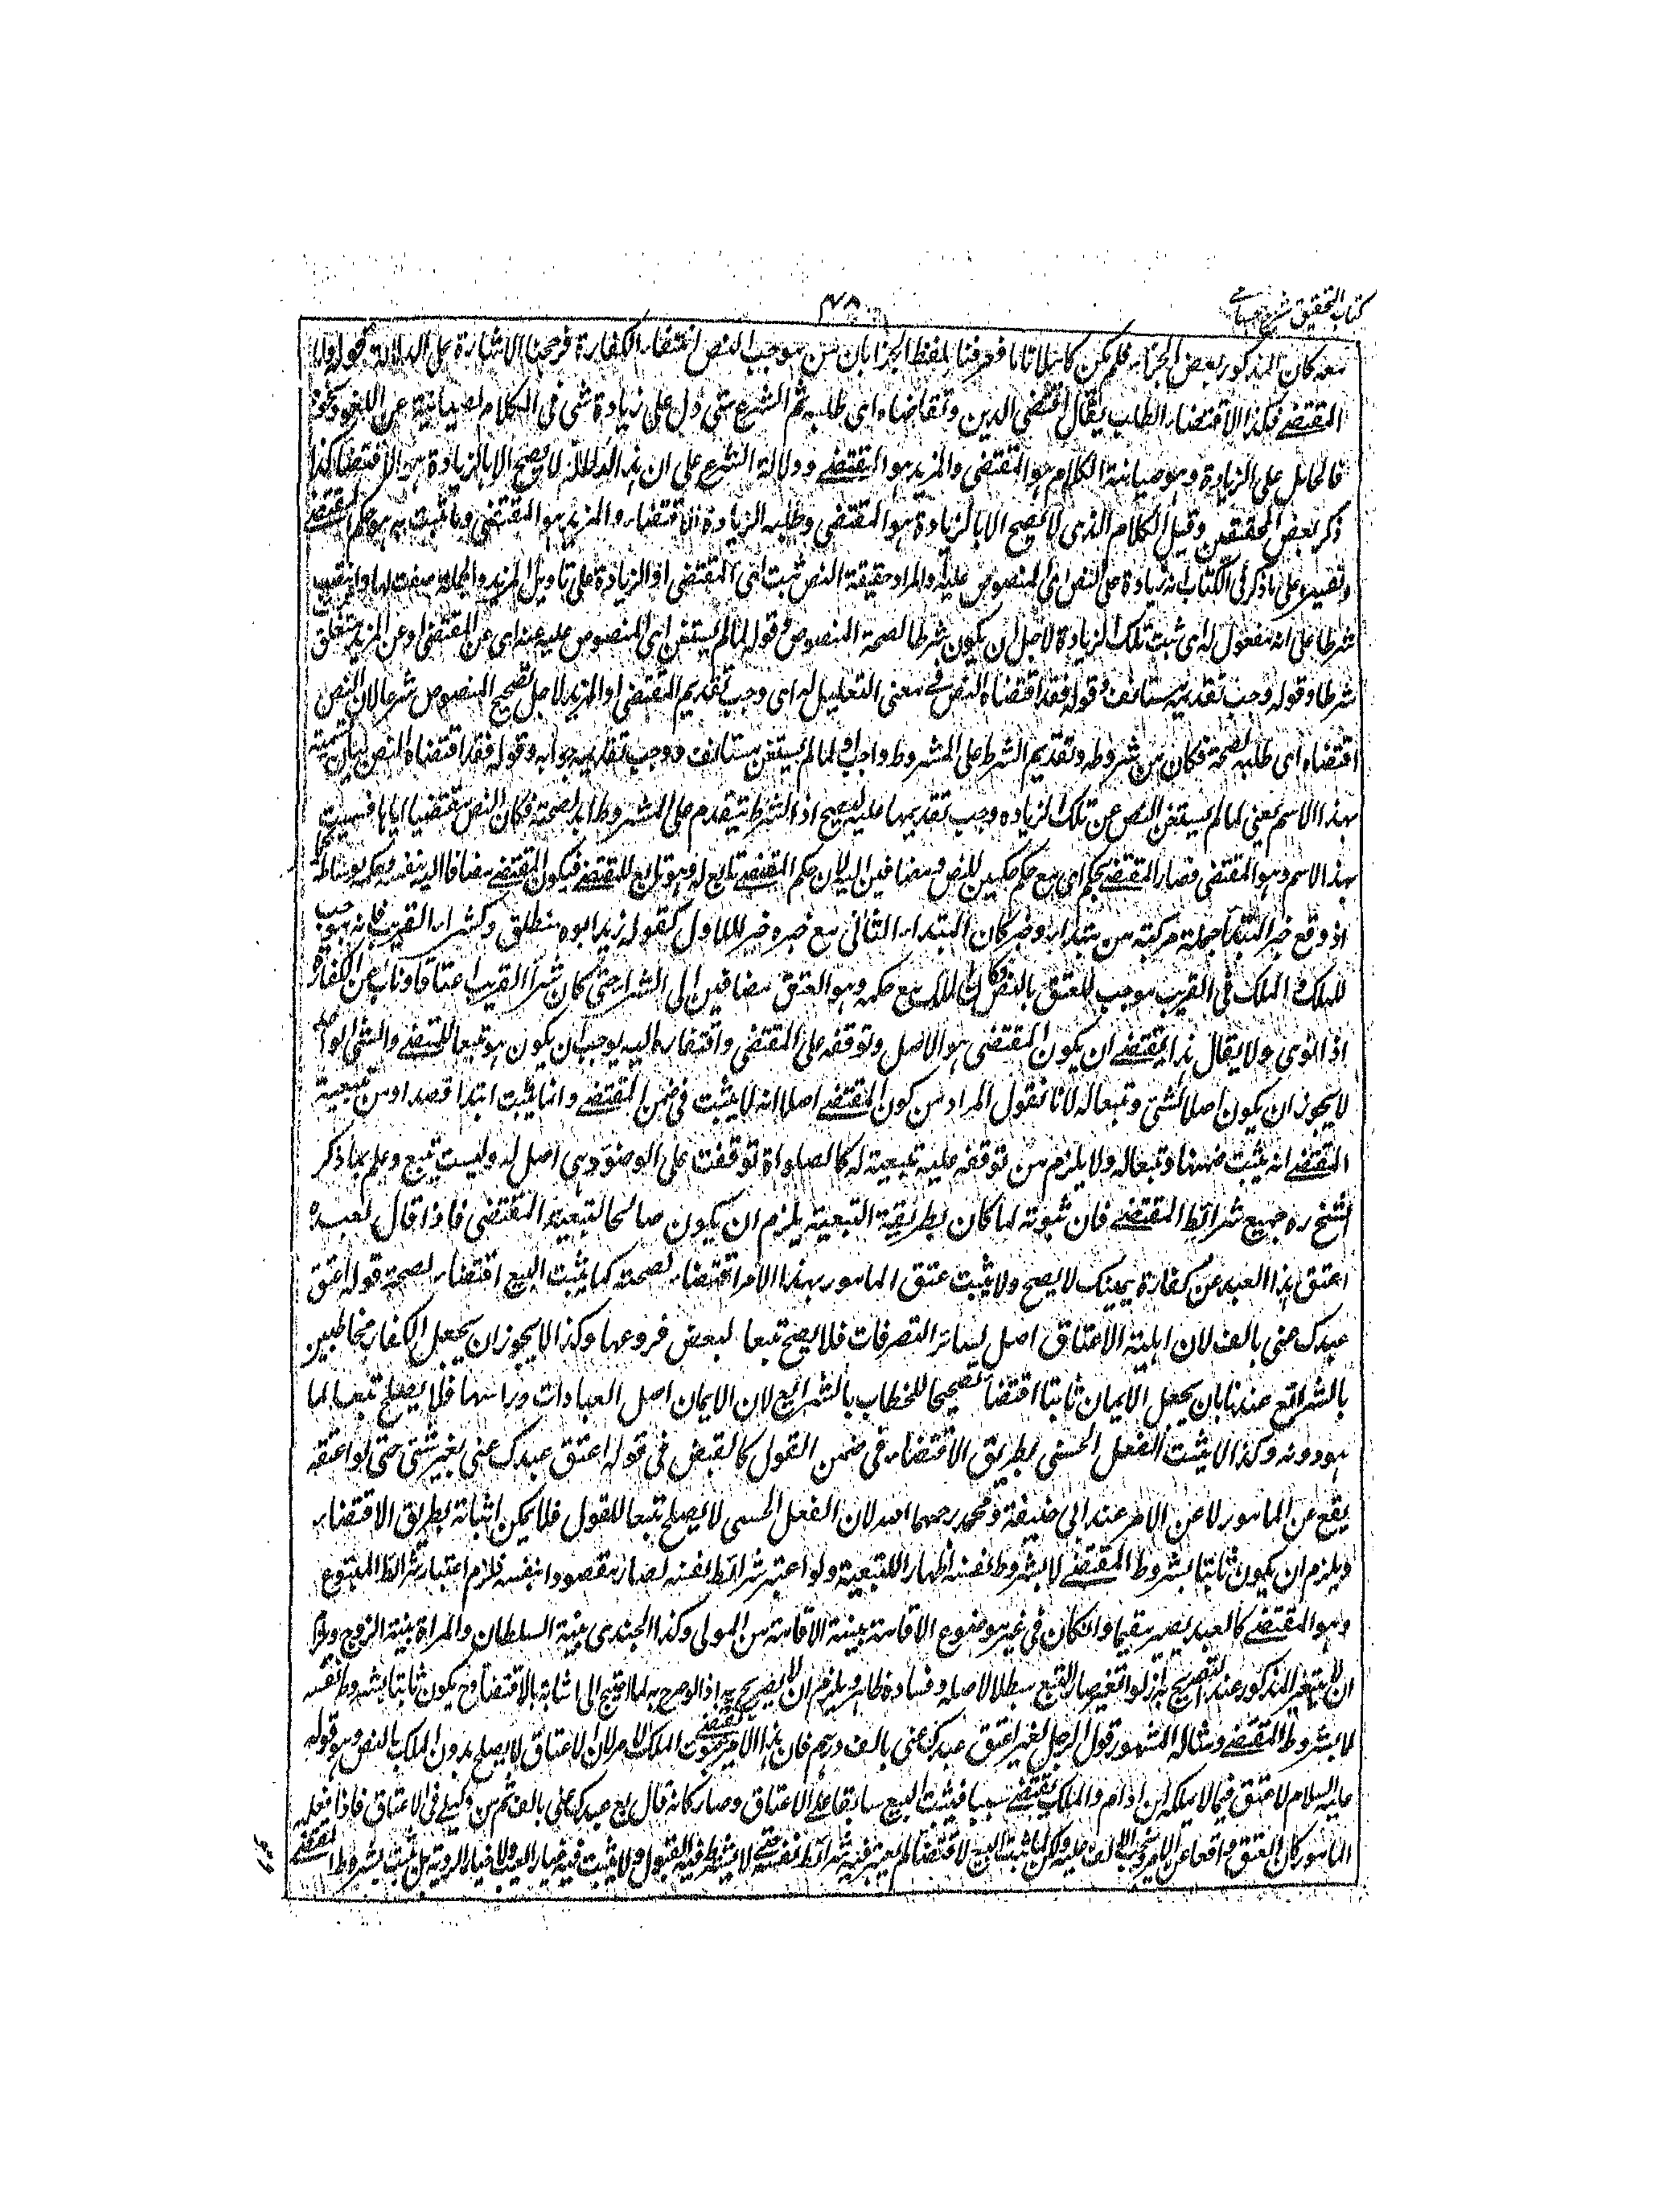 كتاب التحقيق شرح حسامى
٤٨
معه كان المذكور بعض الجزاء فلم يكن كاملا تاما فعرفنا بلفظ الجزاء بان من موجب النص انتفاء الكفارة فرجحنا الاشارة على الدلالة قوله واما
المقتضى فكذا الاقتضاء الطلب يقال اقتضى الدين وتقاضاه اى طلبه ثم الشرع متى دل على زيادة شئ فى الكلام لصيانته عن اللغو ونحوه
فالحامل على الزيادة وهو صيانة الكلام هو المقتضى والمزيد هو المقتضى ودلالة الشرع على ان هذا الكلام لا يصح الا بالزيادة هو الاقتضاء كذا
ذكر بعض المحققين وقيل الكلام الذى لا يصح الا بالزيادة هو المقتضى وطلبه الزيادة الاقتضاء والمزيد هو المقتضى وما ثبت به هو حكم المقتضى
وتفسيره على ما ذكر فى الكتاب انه زيادة على النص اى المنصوص عليه والمراد حقيقة النص ثبت اى المقتضى او الزيادة على تاويل المزيد والجملة صفت لها وانتصب
شرطا على انه مفعول له اى ثبت تلك الزيادة لاجل ان يكون شرطا لصحة المنصوص وقوله لما لم يستغن اى المنصوص عليه عنه اى عن المقتضى او عن المزيد متعلق
شرطا وقوله وجب تقديمه مستانف وقوله فقد اقتضاه النص فى معنى التعليل له اى وجب تقديم المقتضى او المزيد لاجل تصحيح المنصوص شرعا لان النص
اقتضاه اى طلبه لصحته فكان من شروطه وتقديم الشرط على المشروط واجب او لما لم يستغن مستانف ووجب تقديمه جوابه وقوله فقد اقتضاه النص لبيان تسمية
بهذا الاسم يعنى لما لم يستغن النص عن تلك الزيادة وجب تقديمها عليه ليصح اذ الشرط يتقدم على المشروط ابدا لصحته فكان النص مقتضيا اياها فسميت
بهذا الاسم وهو المقتضى فصار المقتضى بحكمه اى مع حكمه حكمين للنص ومضافين اليه لان حكم المقتضى تابع له وهو تابع للمقتضى فيكون المقتضى مضافا اليه بنفسه وحكمه بوساطته
اذ وقع خبر المبتدأ جملة مركبة من مبتداء وخبر كان المبتداء الثانى مع خبره خبر للاول كقوله زيد ابوه منطلق وكشراء القريب فانه موجب
للملك والملك فى القريب موجب للعتق بالنص فكان الملك مع حكمه وهو العتق مضافين الى الشراء حتى كان شراء القريب اعتاقا وناب عن الكفارة
اذا نوى ولا يقال هذا المقتضى ان يكون المقتضى هو الاصل وتوقفه على المقتضى وافتقاره اليه يوجب ان يكون هو تبعا للمقتضى والشئ الواحد
لا يجوز ان يكون اصلا لشئ وتبعا له لانا نقول المراد من كون المقتضى اصلا انه لا يثبت فى ضمن المقتضى وانما يثبت ابتداء قصدا ومن تبعية
المقتضى انه يثبت ضمنا وتبعا له ولا يلزم من توقفه عليه تبعيته له كالصلواة توقفت على الوضوء وهى اصل له وليست بتبع وعلم بما ذكر
الشيخ ره جميع شرائط المقتضى فان ثبوته لما كان بطريقة التبعية يلزم ان يكون صالحا لتبعية المقتضى فاذا قال لعبده
اعتق هذا العبد عن كفارة يمينك لا يصح ولا يثبت عتق المامور بهذا الامر اقتضاء لصحته كما يثبت البيع اقتضاء لصحة قوله اعتق
عبدك عنى بالف لان اهلية الاعتاق اصل لسائر التصرفات فلا يصح تبعا لبعض فروعها وكذا لا يجوز ان يجعل الكفار مخاطبين
بالشرائع عندنا بان يجعل الايمان ثابتا اقتضاء تصحيحا للخطاب بالشرائع لان الايمان اصل العبادات وراسها فلا يصلح تبعا لما
هو دونه وكذا لا يثبت الفعل الحسى بطريق الاقتضاء فى ضمن القول كالقبض فى قوله اعتق عبدك عنى بغير شئ حتى لو اعتقه
يقع عن المامور لا عن الامر عند ابى حنيفة ومحمد رحمهما الله لان الفعل الحسى لا يصلح تبعا للقول فلا يمكن اثباته بطريق الاقتضاء
ويلزم ان يكون ثابتا بشروط المقتضى لا بشروط نفسه اظهارا للتبعية ولو اعتبر شرائط نفسه لصار مقصودا بنفسه فلزم اعتبار شرائط المتبوع
وهو المقتضى كالعبد يصير مقيما وانكان فى غير موضوع الاقامة بنية الاقامة من المولى وكذا الجندى بنية السلطان والمراة بنية الزوج ويلزم
ان لا يتغير المذكور عند التصريح به اذ لو تغير صار التبع مبطلا لاصله وفساده ظاهر ويلزم ان لا يصرح به اذ لو صرح به لما احتيج الى اثباته بالاقتضاء وح يكون ثابتا بشروط نفسه
لا بشروط المقتضى ومثاله المشهور قول الرجل لغيره اعتق عبدك عنى بالف درهم فان هذا الامر يقتضى ثبوت الملك للامر لان الاعتاق لا يصح بدون الملك بالنص وهو قوله
عليه السلام لا عتق فيما لا يملكه ابن ادم والملك يقتضى سببا فيثبت البيع سابقا على الاعتاق وصار كانه قال بع عبدك عنى بالف ثم كن وكيلى فى الاعتاق فاذا فعله
المامور كان العتق واقعا عن الامر ويجب الالف عليه ولكن لما ثبت البيع اقتضاء لم يعتبر فيه شرائط نفسه حتى لا يشترط فيه القبول ولا يثبت فيه خيار العيب ولا خيار الروية بل يثبت بشروط المقتضى